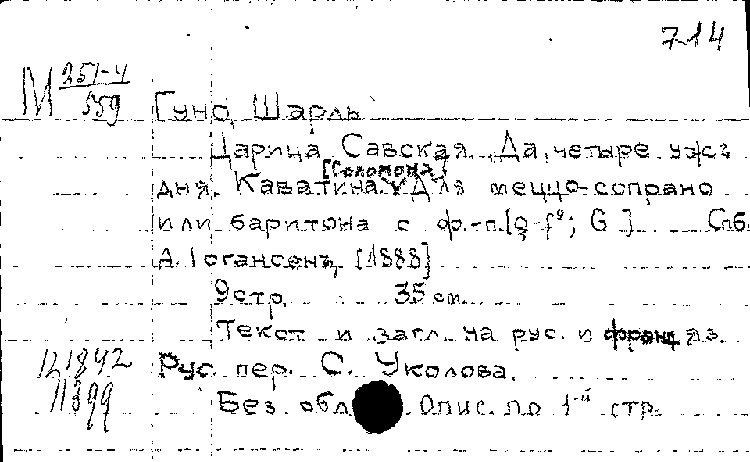 714
М 251-4/559
Гуно, Шарль
Царица Савская. Да, четыре уже
дня. Каватина [Соломона] для меццо-сопрано
или баритона с ф.-п. [g-f²; G] Спб.
А. Іогансенъ, [1888]
9 стр. 35 см.
Текст и загл. на рус. и франц. яз.
121842 Рус. пер. С. Уколова.
11399 Без обл. Опис. по 1-й стр.